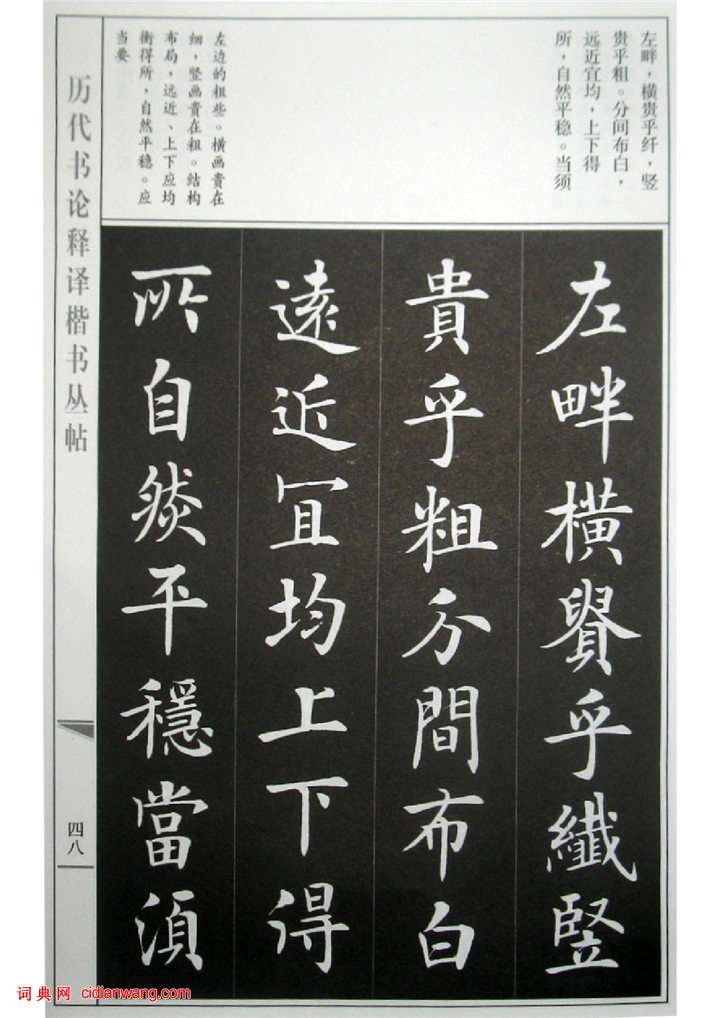 左畔，横贵乎纤，竖
贵乎粗。分间布白，
远近宜均，上下得
所，自然平稳。当须
左边的粗些。横画贵在
细，竖画贵在粗。结构
布局，远近、上下应均
衡得所，自然平稳。应
当要
历代书论释译楷书丛帖
左畔橫貴乎纖竪
貴乎粗分間布白
遠近宜均上下得
所自然平穩當須
四八
词典网 cidianwang.com